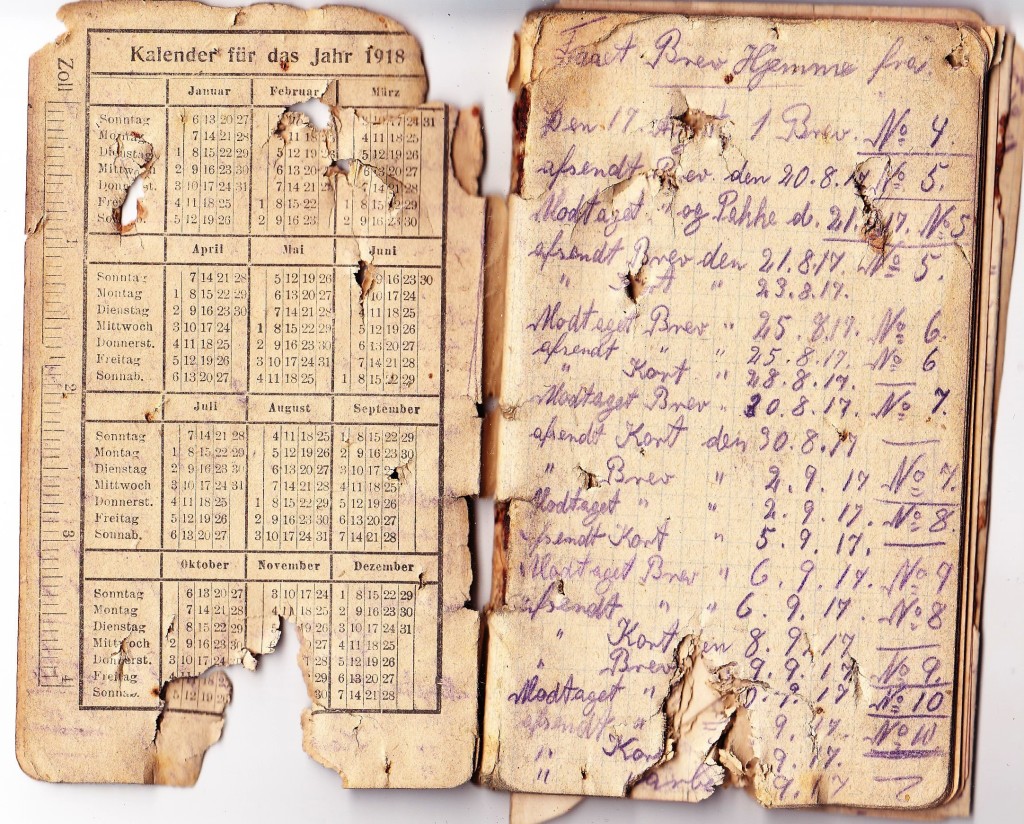 Kalender für das Jahr 1918
Zoll
Januar Februar März
Sonntag 6 13 20 27 31
Montag 7 14 21 28 11 18 4 11 18 25
Dienstag 1 8 15 22 29 5 12 19 26 5 12 19 26
Mittwoch 2 9 16 23 30 6 13 20 13 20 27
Donnerst. 3 10 17 24 31 7 14 21 14 21 28
Frei 4 11 18 25 1 8 15 22 1 8 15 22 29
5 12 19 26 2 9 16 23 2 9 16 23 30
April Mai Juni
Sonntag 7 14 21 28 5 12 19 26 9 16 23 30
Montag 1 8 15 22 29 6 13 20 27 10 17 24
Dienstag 2 9 16 23 30 7 14 21 28 4 11 18 25
Mittwoch 3 10 17 24 1 8 15 22 29 5 12 19 26
Donnerst. 4 11 18 25 2 9 16 23 30 6 13 20 27
Freitag 5 12 19 26 3 10 17 24 31 7 14 21 28
Sonnab. 6 13 20 27 4 11 18 25 1 8 15 22 29
Juli August September
Sonntag 7 14 21 28 4 11 18 25 1 8 15 22 29
Montag 1 8 15 22 29 5 12 19 26 2 9 16 23 30
Dienstag 2 9 16 23 30 6 13 20 27 3 10 17
Mittwoch 3 10 17 24 31 7 14 21 28 4 11 18 25
Donnerst. 4 11 18 25 1 8 15 22 29 5 12 19 26
Freitag 5 12 19 26 2 9 16 23 30 6 13 20 27
Sonnab. 6 13 20 27 3 10 17 24 31 7 14 21 28
Oktober November Dezember
Sonntag 6 13 20 27 3 10 17 24 1 8 15 22 29
Montag 7 14 21 28 4 11 18 25 2 9 16 23 30
Dienstag 1 8 15 22 29 19 26 3 10 17 24 31
Mittwoch 2 9 16 23 30 4 11 18 25
Donnerst. 3 10 17 24 28 5 12 19 26
Freitag 4 29 6 13 20 27
Sonnab. 5 12 19 26 30 7 14 21 28
1
2
3
4
Faaet Brev Hjemme fra.
Den 17. 1 Brev. No 4.
afsendt Brev den 20.8.17 No 5.
Modtaget " og Pakke d. 21. 17. No 5
afsendt Brev den 21.8.17. No 5.
" Kort " 23.8.17.
Modtaget Brev " 25.8.17. No 6.
afsendt " " 25.8.17. No 6
" Kort " 28.8.17. —
Modtaget Brev " 30.8.17. No 7.
afsendt Kort den 30.8.17 —
" Brev " 2.9.17 No 7.
Modtaget " " 2.9.17. No 8.
afsendt Kort " 5.9.17. —
Modtaget Brev " 6.9.17. No 9
afsendt " " 6.9.17. No 8
" Kort den 8.9.17 —
" Brev 9.9.17 No 9
Modtaget " 9.17 No 10
afsendt " 9.17 No 10
" Kort 9.17.
" 9.17 —